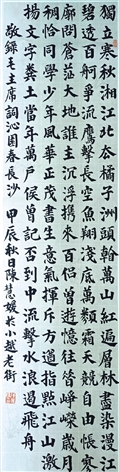 獨立寒秋湘江北去橘子洲頭看萬山紅遍層林盡染漫江
碧透百舸爭流鷹擊長空魚翔淺底萬類霜天競自由悵寥
廓問蒼茫大地誰主沉浮攜來百侶曾遊憶往昔崢嶸歲月
稠恰同學少年風華正茂書生意氣揮斥方遒指點江山激
揚文字糞土當年萬戶侯曾記否到中流擊水浪遏飛舟
敬錄毛主席詞沁園春長沙 甲辰秋日陳慧媛於小越老街